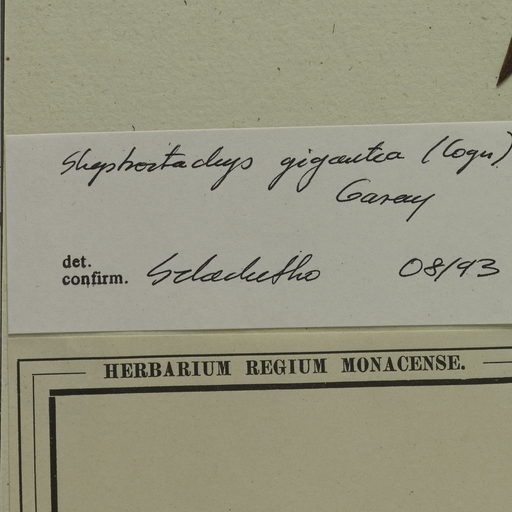 Skeptrostachys gigantea (Cogn)
Garay
det.
confirm. Szlachetko 08/93
HERBARIUM REGIUM MONACENSE.